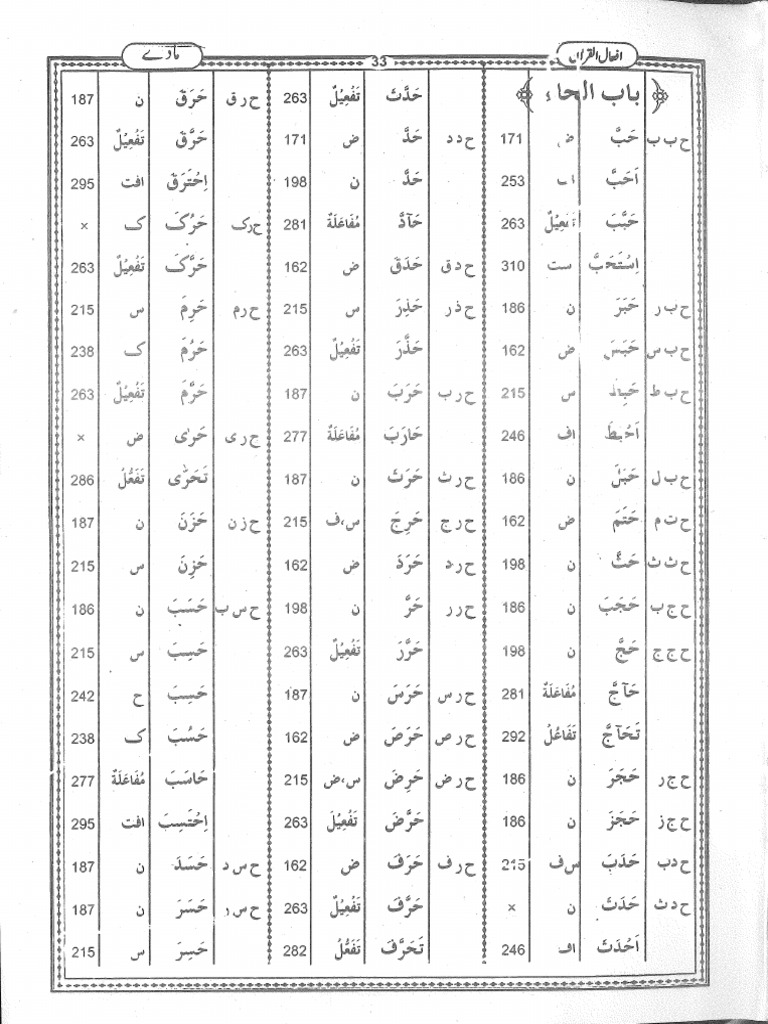 افعال القرآن 33 مادے
باب الحاء
ح ب ب حَبَّ ض 171
اَحَبَّ اف 253
حَبَّبَ تَفْعِيْلٌ 263
اِسْتَحَبَّ ست 310
ح ب ر حَبَرَ ن 186
ح ب س حَبَسَ ض 162
ح ب ط حَبِطَ س 215
اَحْبَطَ اف 246
ح ب ل حَبَلَ ن 186
ح ت م حَتَمَ ض 162
ح ث ث حَثَّ ن 198
ح ج ب حَجَبَ ن 186
ح ج ج حَجَّ ن 198
حَآجَّ مُفَاعَلَةٌ 281
تَحَآجَّ تَفَاعُلٌ 292
ح ج ر حَجَرَ ن 186
ح ج ز حَجَزَ ن 186
ح د ب حَدَبَ س ف 215
ح د ث حَدَثَ ن ×
اَحْدَثَ اف 246
حَدَّثَ تَفْعِيْلٌ 263
ح د د حَدَّ ض 171
حَدَّ ن 198
حَآدَّ مُفَاعَلَةٌ 281
ح د ق حَدَقَ ض 162
ح ذ ر حَذِرَ س 215
حَذَّرَ تَفْعِيْلٌ 263
ح ر ب حَرَبَ ن 187
حَارَبَ مُفَاعَلَةٌ 277
ح ر ث حَرَثَ ن 187
ح ر ج حَرِجَ س،ف 215
ح ر د حَرَدَ ض 162
ح ر ر حَرَّ ن 198
حَرَّرَ تَفْعِيْلٌ 263
ح ر س حَرَسَ ن 187
ح ر ص حَرَصَ ض 162
ح ر ض حَرِضَ س،ض 215
حَرَّضَ تَفْعِيْلٌ 263
ح ر ف حَرَفَ ض 162
حَرَّفَ تَفْعِيْلٌ 263
تَحَرَّفَ تَفَعُّلٌ 282
ح ر ق حَرَقَ ن 187
حَرَّقَ تَفْعِيْلٌ 263
اِحْتَرَقَ افت 295
ح ر ک حَرُکَ ک ×
حَرَّکَ تَفْعِيْلٌ 263
ح ر م حَرِمَ س 215
حَرُمَ ک 238
حَرَّمَ تَفْعِيْلٌ 263
ح ر ی حَرٰی ض ×
تَحَرّٰی تَفَعُّلٌ 286
ح ز ن حَزَنَ ن 187
حَزِنَ س 215
ح س ب حَسَبَ ن 186
حَسِبَ س 215
حَسِبَ ح 242
حَسُبَ ک 238
حَاسَبَ مُفَاعَلَةٌ 277
اِحْتَسِبَ افت 295
ح س د حَسَدَ ن 187
ح س ر حَسَرَ ن 187
حَسِرَ س 215